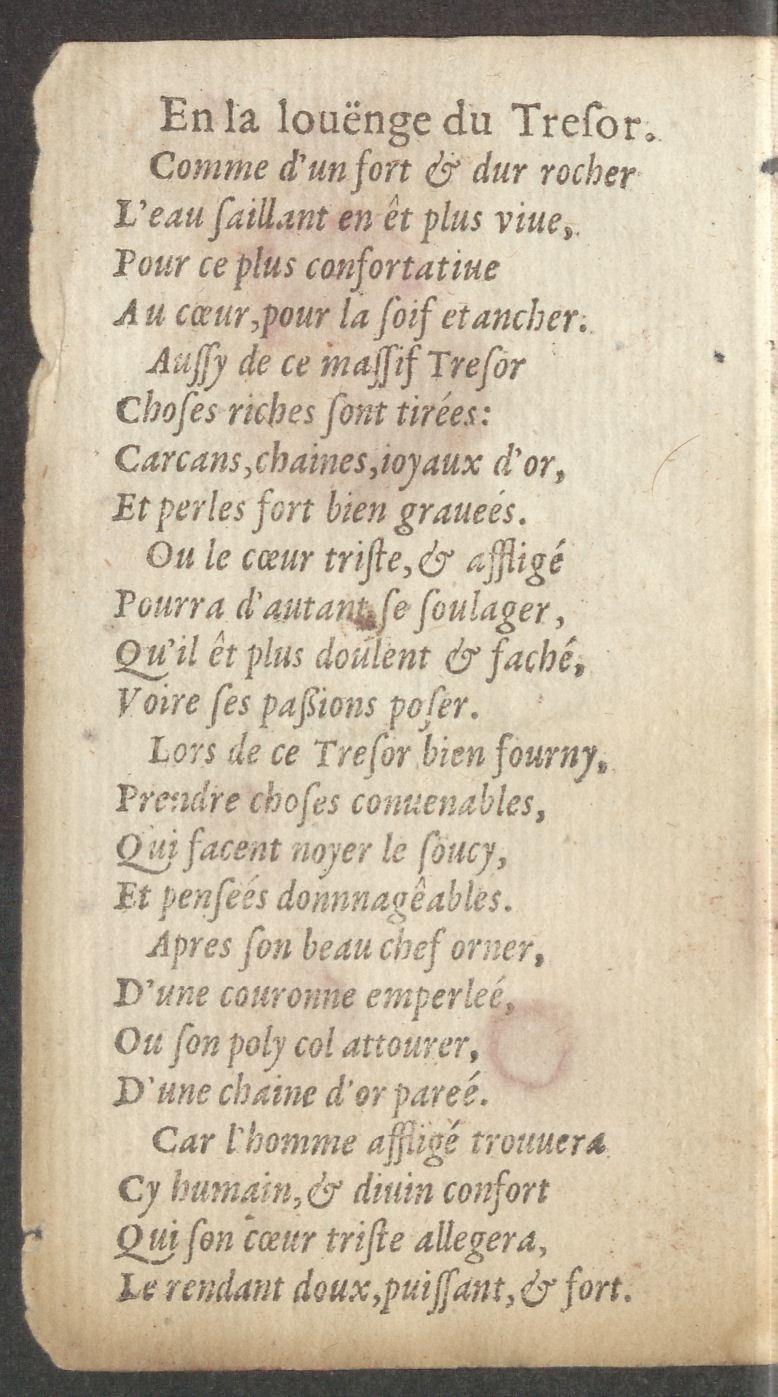 En la louënge du Treſor.
Comme d'un fort & dur rocher
L'eau ſaillant en êt plus viue,
Pour ce plus confortatiue
Au cœur,pour la ſoif etancher.
Auſſy de ce maſſif Treſor
Choſes riches ſont tirées:
Carcans,chaines,ioyaux d'or,
Et perles fort bien graueés.
Ou le cœur triſte,& affligé
Pourra d'autant ſe ſoulager,
Qu'il êt plus doulent & faché,
Voire ſes paßions poſer.
Lors de ce Treſor bien fourny,
Prendre choſes conuenables,
Qui facent noyer le ſoucy,
Et penſeés donnnagêables.
Apres ſon beau chef orner,
D'une couronne emperleé,
Ou ſon poly col attourer,
D'une chaine d'or pareé.
Car l'homme affligé trouuera
Cy humain,& diuin confort
Qui ſon cœur triſte allegera,
Le rendant doux,puiſſant,& fort.